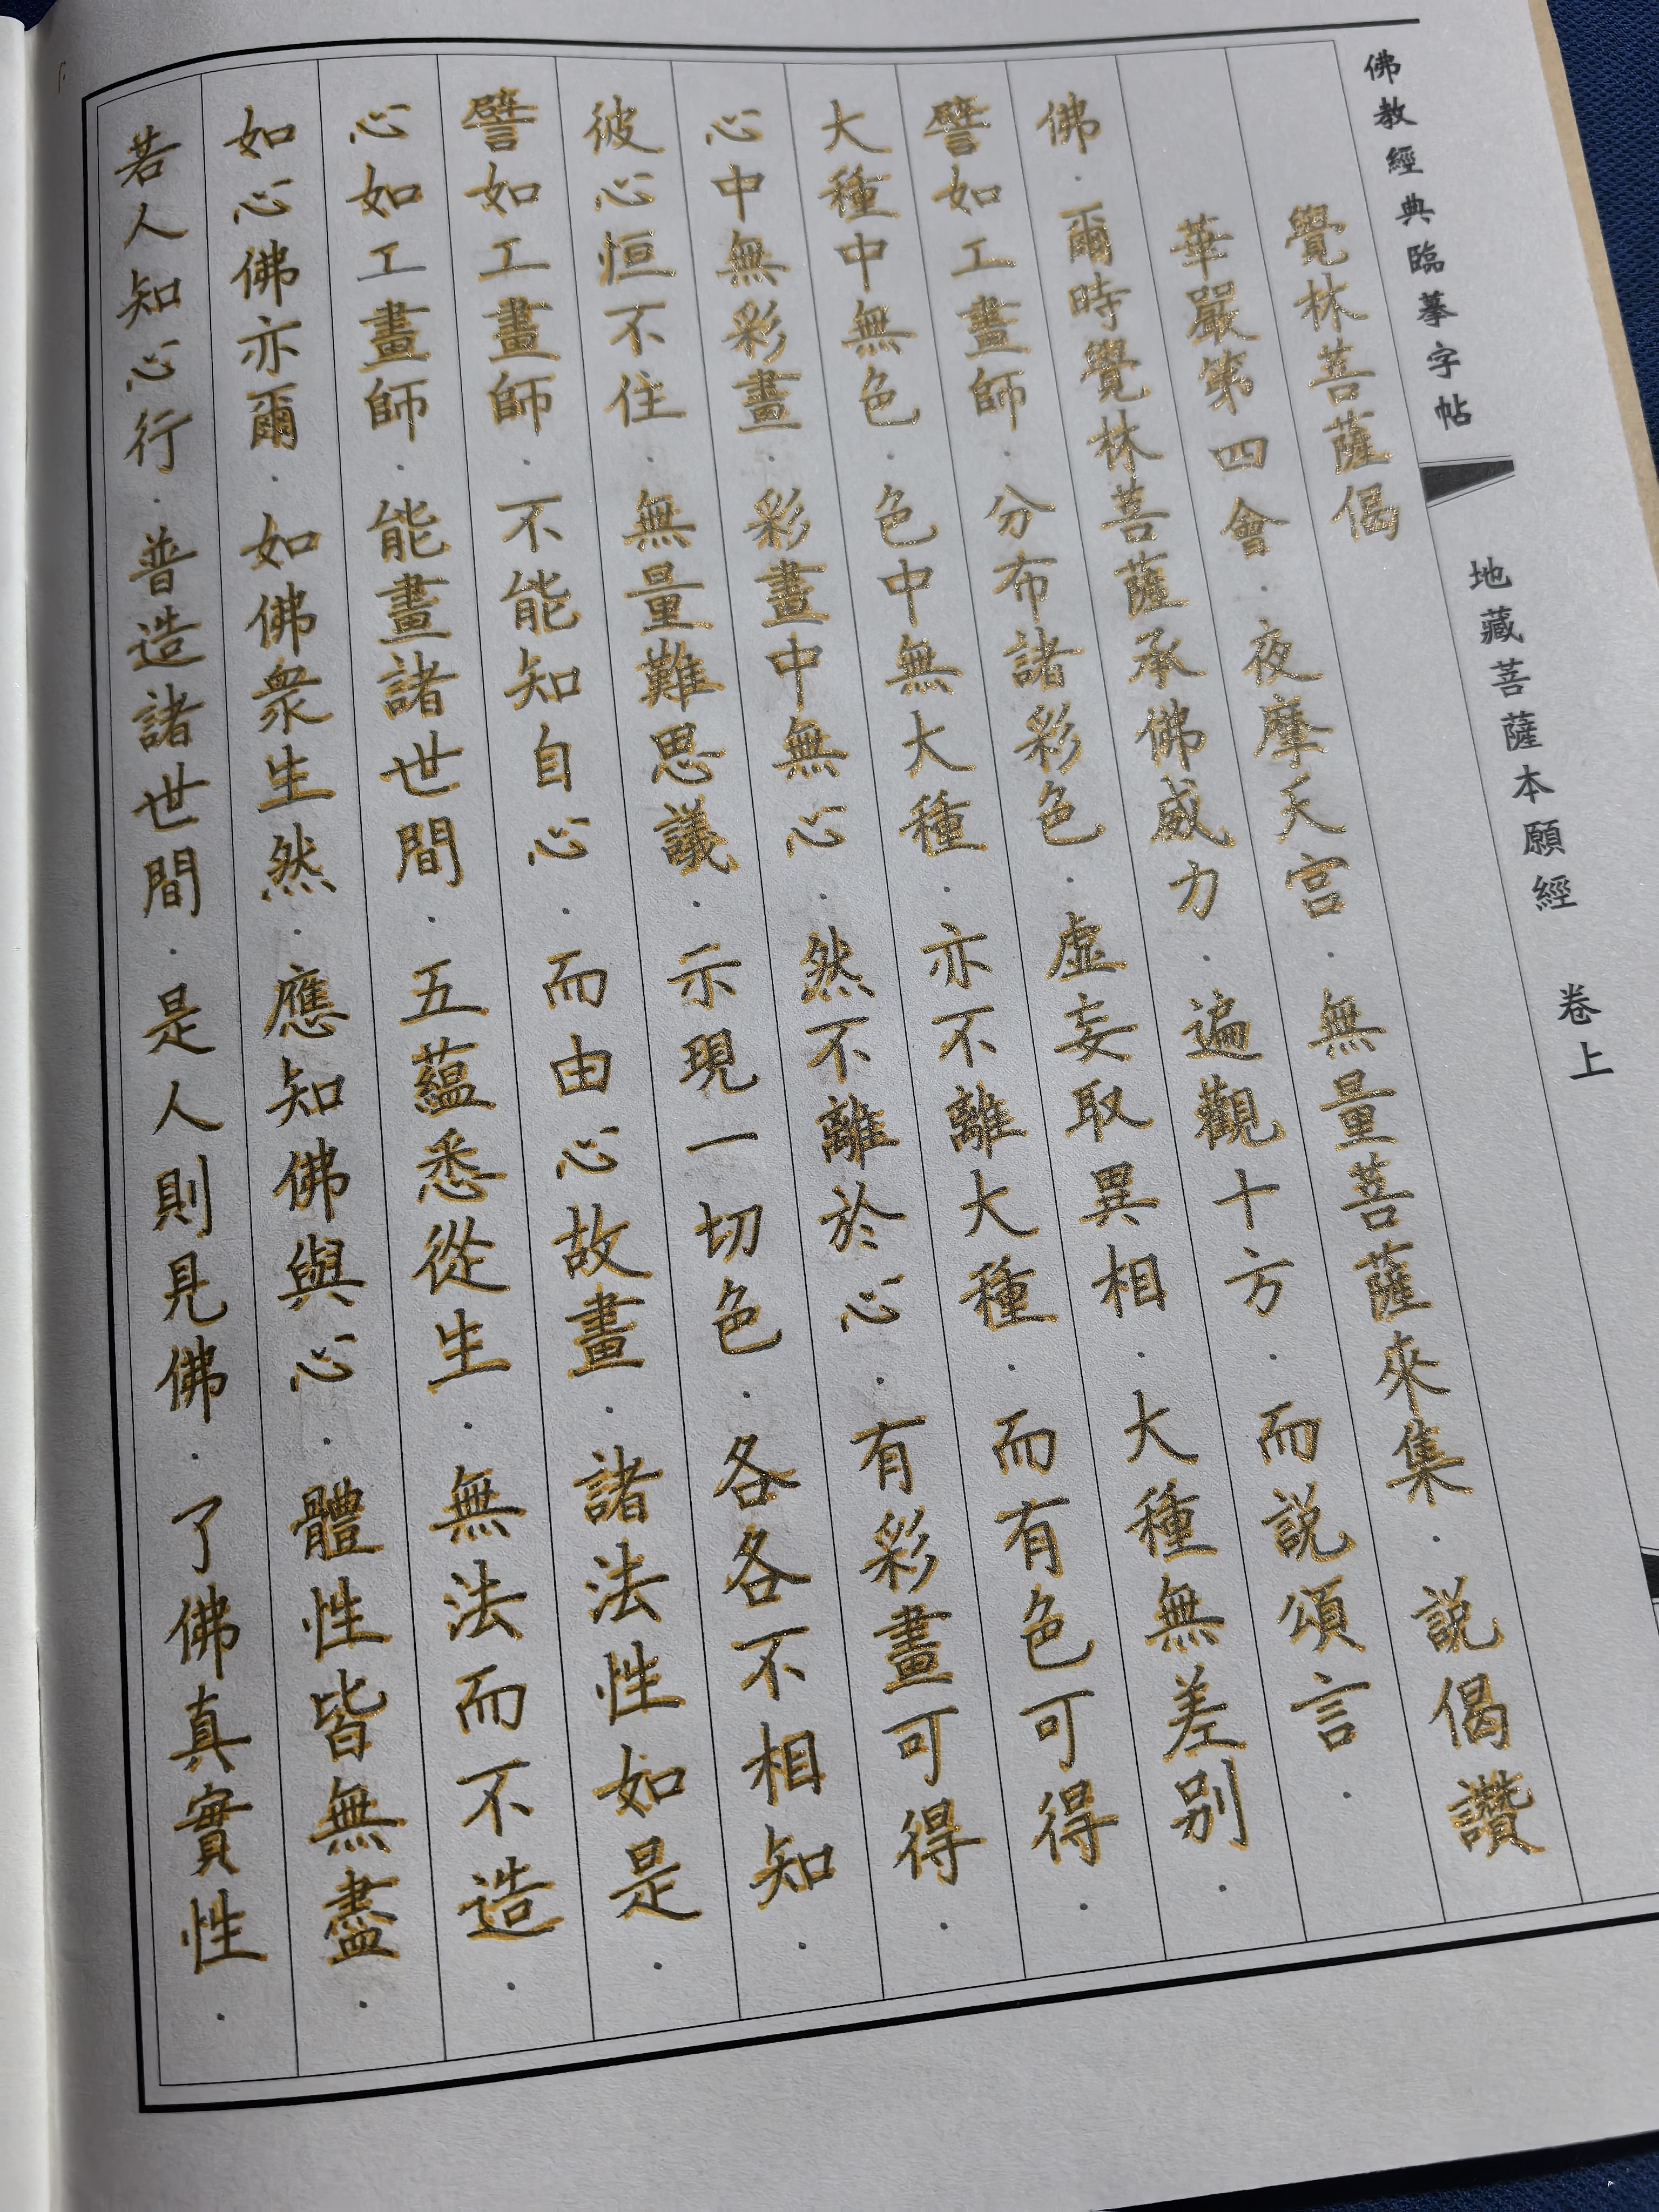 佛教經典臨摹字帖
地藏菩薩本願經 卷上
覺林菩薩偈
華嚴第四會．夜摩天宫．無量菩薩來集．説偈讚
佛．爾時覺林菩薩承佛威力．遍觀十方．而説頌言．
譬如工畫師．分布諸彩色．虚妄取異相．大種無差别．
大種中無色．色中無大種．亦不離大種．而有色可得．
心中無彩畫．彩畫中無心．然不離於心．有彩畫可得．
彼心恒不住．無量難思議．示現一切色．各各不相知．
譬如工畫師．不能知自心．而由心故畫．諸法性如是．
心如工畫師．能畫諸世間．五蘊悉從生．無法而不造．
如心佛亦爾．如佛衆生然．應知佛與心．體性皆無盡．
若人知心行．普造諸世間．是人則見佛．了佛真實性．